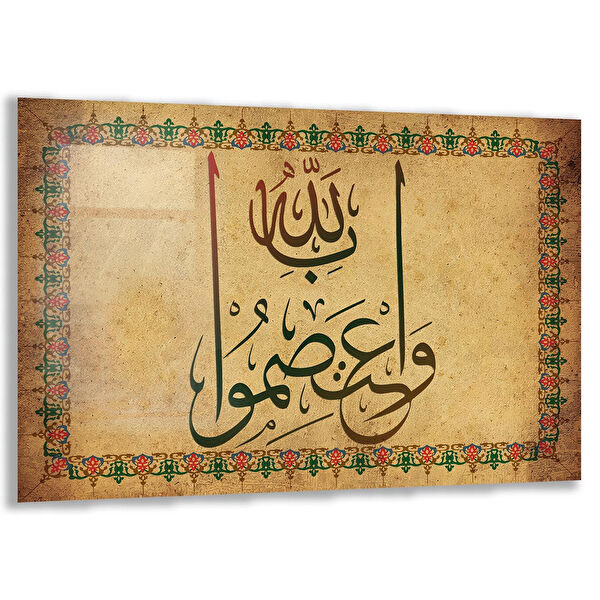 وَاعْتَصِمُوا
بِاللَّهِ